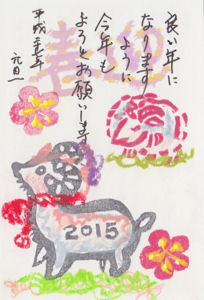 良い年に
なります
ように
今年も
よろしくお願いします
平成二十七年
元旦
2015